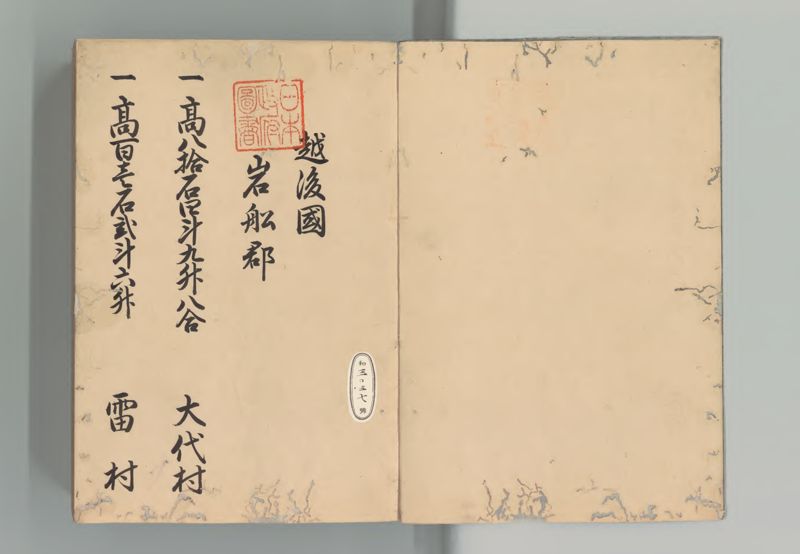 日本
政府
圖書
越後國
岩船郡
一高八拾石四斗九升八合 大代村
一高百壱石弐斗六升 雷村
和三〇三七号